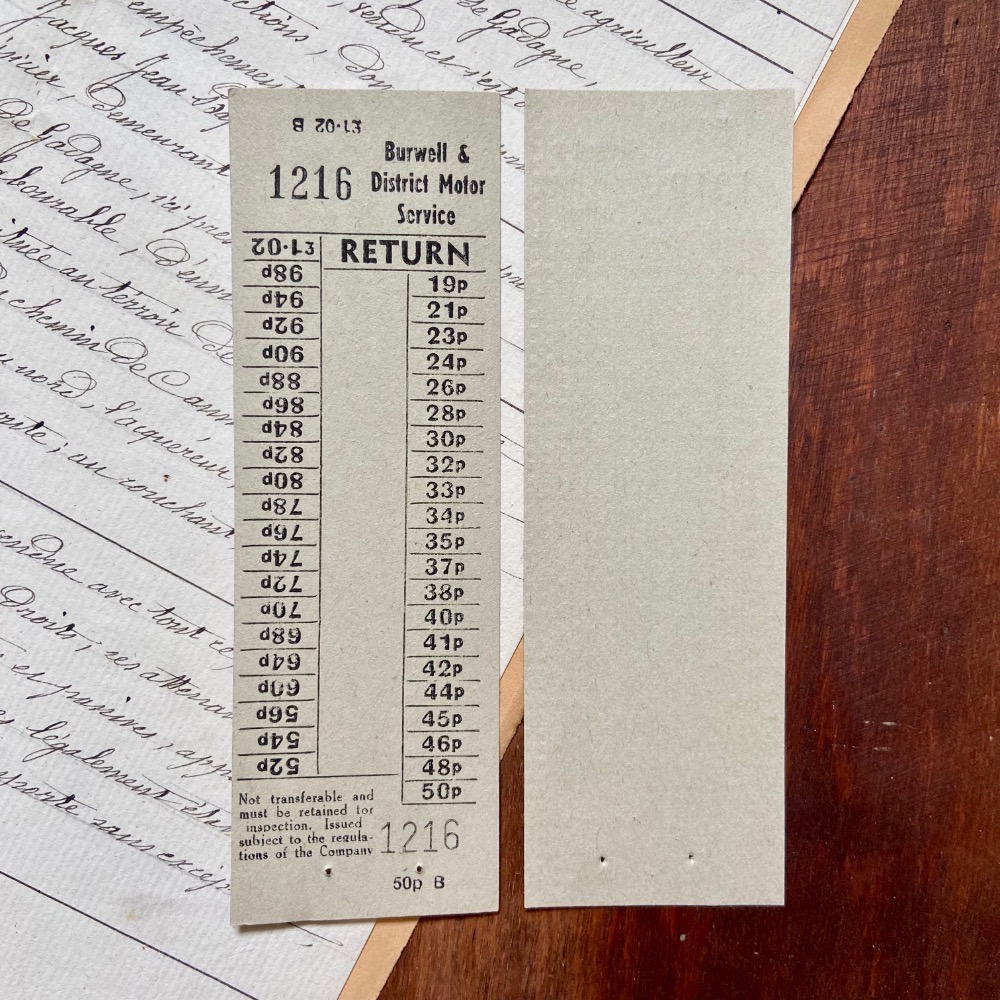 empêchement
agriculteur
De Gadagne,
Jacques Jean
Demeurant
De Gadagne,
labourable,
au terroir De
chemin De
nord, l'acquéreur,
au couchant
avec tout
Droits, ses
légalement
sans
£1·02 B
1216
Burwell &
District Motor
Service
RETURN
£1·02
98p
94p
92p
90p
88p
86p
84p
82p
80p
78p
76p
74p
72p
70p
68p
64p
60p
56p
54p
52p
19p
21p
23p
24p
26p
28p
30p
32p
33p
34p
35p
37p
38p
40p
41p
42p
44p
45p
46p
48p
50p
Not transferable and
must be retained for
inspection. Issued
subject to the regula-
tions of the Company
1216
50p B